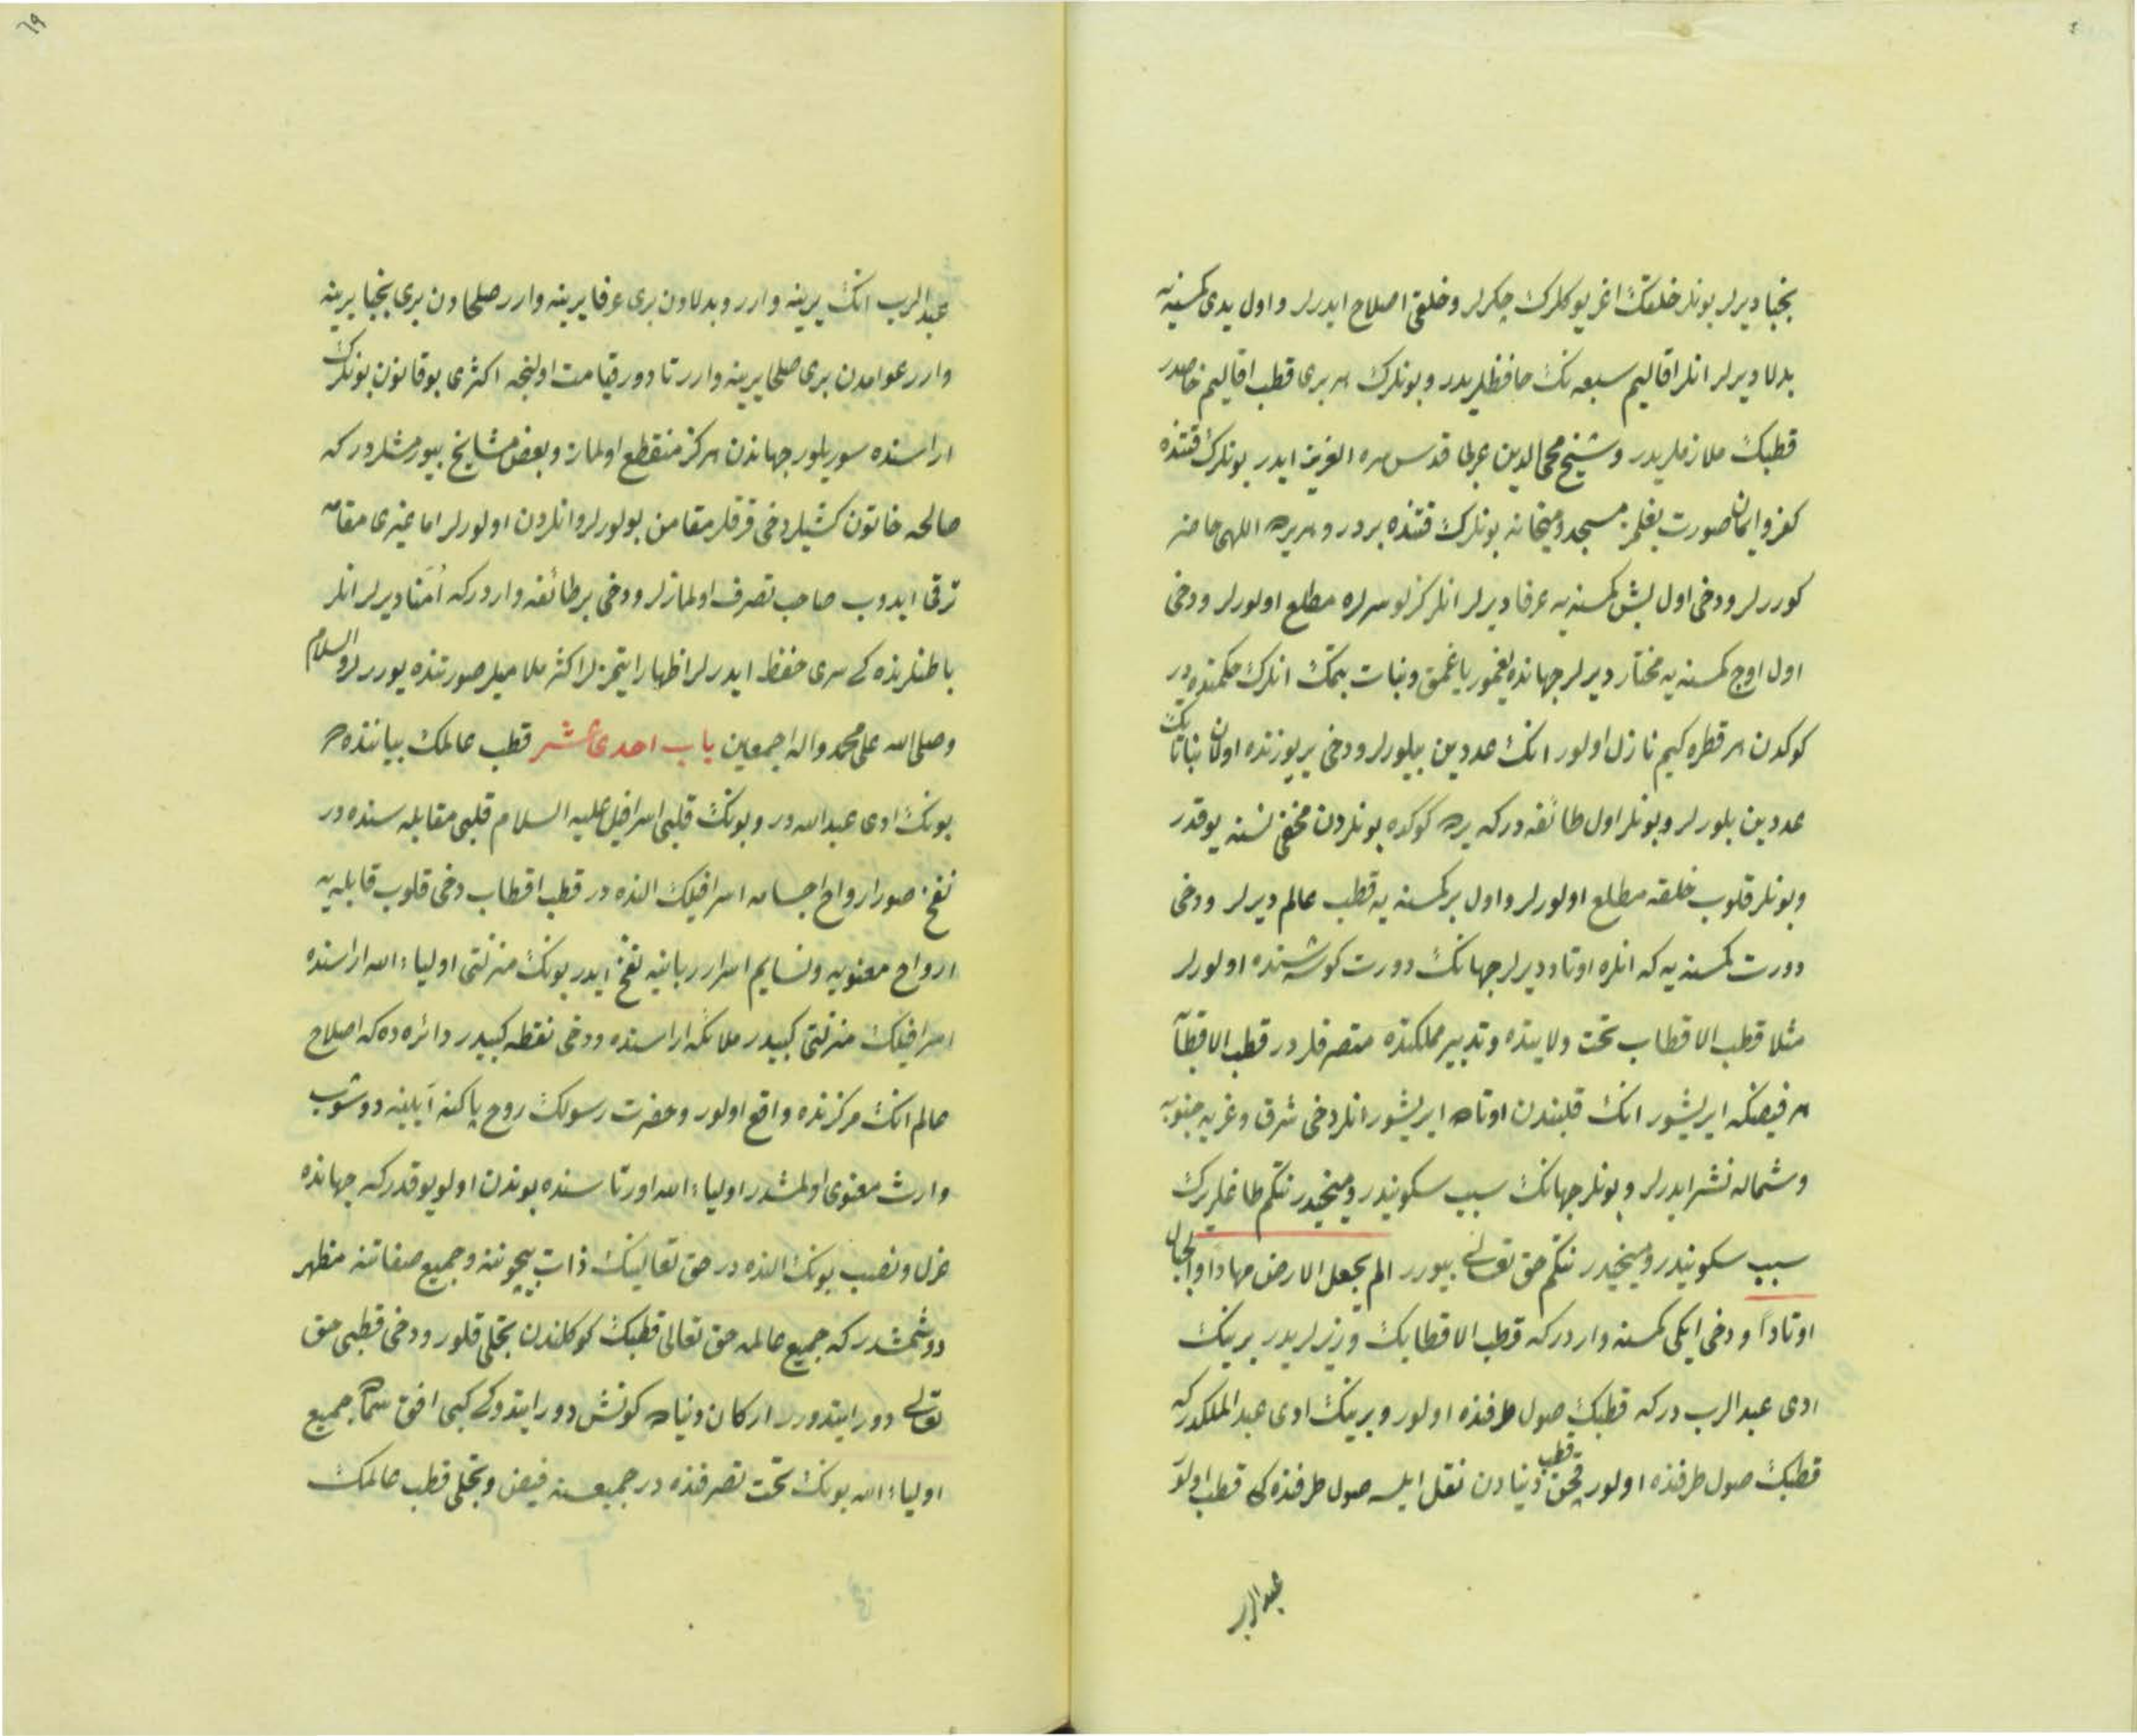 نجبا ديرلر بونلر خلقك اغر يوكلرك چكرلر وخلقى اصلاح ايدرلر و اول يدى كمسنه يه
بدلا ديرلر انلر اقاليم سبعه نك حافظلريدر و بونلرك هر برى قطب اقاليم خاصدر
قطبك ملازملريدر و شيخ محى الدين عربى قدس سره العزيز ايدر بونلرك قتنده
كفر و ايمان صورت بغلمز مسجد و ميخانه بونلرك قتنده بردر و هر يرده اللهى حاضر
كوررلر ودخى اول بش كمسنه يه عرفا ديرلر انلر كزلو سرلره مطلع اولورلر ودخى
اول اوج كمسنه يه مختار ديرلر جهانده يغمور ياغمق ونبات بتمك انلرك حكمنده در
كوكدن هر قطره كيم نازل اولور انك عددين بيلورلر ودخى ير يوزنده اولان نباتاتك
عددين بلورلر و بونلر اول طائفه در كه يرده كوكده بونلردن مخفى نسنه يوقدر
وبونلر قلوب خلقه مطلع اولورلر و اول بر كمسنه يه قطب عالم ديرلر ودخى
دورت كمسنه يه كه انلره اوتاد ديرلر جهانك دورت كوشه سنده اولورلر
مثلا قطب الاقطاب تحت ولايتده و تدبير مملكتده متصرفلردر قطب الاقطاب
هر فيضكه ايريشور انك قلبندن اوتاده ايريشور انلر دخى شرق وغربه جنوبه
وشماله نشر ايدرلر و بونلر جهانك سبب سكونيدر و ميخيدر نتكم طاغلريرك
سبب سكونيدر و ميخيدر نتكم حق تعالى بيورر الم نجعل الارض مهادا والجبال
اوتاداً ودخى ايكى كمسنه واردر كه قطب الاقطابك وزيرلريدر برينك
ادى عبد الرب در كه قطبك صول طرفنده اولور و برينك ادى عبد الملكدر كه
قطبك صول طرفنده اولور قچن قطب دنيادن نقل ايلسه صول طرفنده كى قطب اولور
عبد الرب
٦٩
عبد الرب انك يرينه وارر و بدلادن برى عرفا يرينه وارر صلحادن برى نجبا يرينه
وارر عوامدن برى صلحا يرينه وارر تا دور قيامت اولنجه اكثرى بو قانون بونلرك
اراسنده سوريلور جهاندن هركز منقطع اولماز و بعض مشايخ بيورمشلردر كه
صالحه خاتون كشيلر دخى قرقلر مقامن بولورلر و انلردن اولورلر اما غيرى مقامه
ترقى ايدوب صاحب تصرف اولمازلر ودخى بر طائفه واردر كه اُمَنا ديرلر انلر
باطنلرنده كى سرى حفظ ايدرلر اظهار ايتمزلر اكثر ملاميلر صورتنده يوررلر والسلام
وصلى الله على محمد واله اجمعين باب احدى عشر قطب عالمك بياننده در
بونك ادى عبد الله در و بونك قلبى اسرافيل عليه السلام قلبى مقابله سنده در
نفخ صور ارواح اجسامه اسرافيلك النده در قطب اقطاب دخى قلوب قابليه يه
ارواح معنويه و نسايم اسرار ربانيه نفخ ايدر بونك منزلتى اولياء الله اراسنده
اسرافيلك منزلتى كبيدر ملائكه اراسنده ودخى نقطه كبيدر دائره ده كه اصلاح
عالم انك مركزنده واقع اولور و حضرت رسولك روح پاكنه آيينه دوشوب
وارث معنوى اولمشدر اولياء الله اورتاسنده بوندن اولو يوقدر كه جهانده
عزل و نصب بونك النده در حق تعالينك ذات بيچوننه و جميع صفاتنه مظهر
دوشمشدر كه جميع عالمه حق تعالى قطبك كوكلندن تجلى قلور ودخى قطبى حق
تعالى دور ايتدورر اركان دنياده كونش دور ايتدوكى كبى افق سماده جميع
اولياء الله بونك تحت تصرفنده در جميعسنه فيض و تجلى قطب عالمك